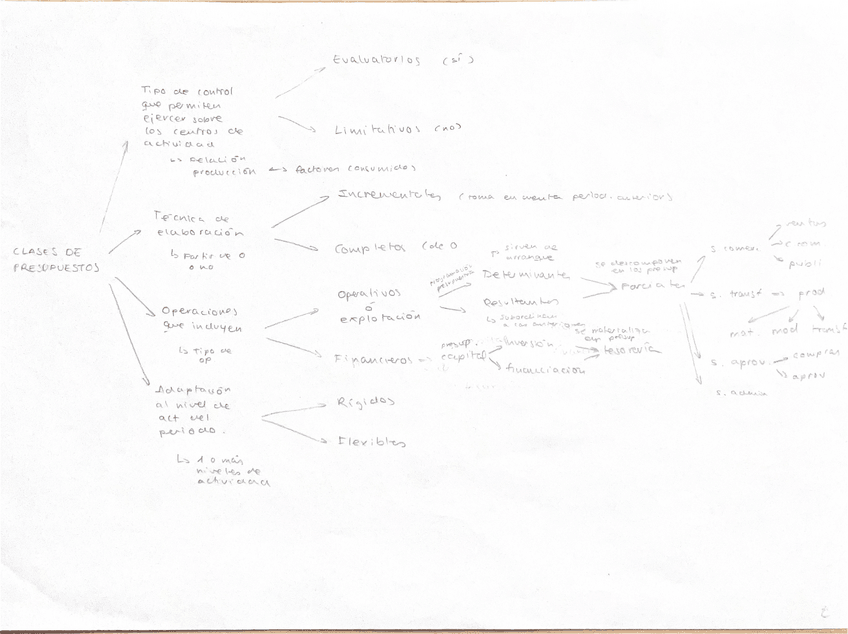 CLASES DE
PRESUPUESTOS
Tipo de control
que permiten
ejercer sobre
los centros de
actividad
↳ Relación
producción ↔ factores consumidos
Evaluatorios (sí)
Limitativos (no)
Técnica de
elaboración
↳ Partir de 0
o no
Incrementales (toma en cuenta period. anterior)
Completos (de 0
Operaciones
que incluyen
↳ Tipo de
op
Operativos
ó
explotación
↑ sirven de
arranque
Determinantes
Resultantes
↳ subordinan
a los anteriores
se descomponen
en los presup
Parciales
s. comer.
ventas
com
publi
s. transf → prod
mat. mod transf
s. aprov.
compras
aprov
s. admin
Financieros → presup.
capital
inversión
financiación
se materializa
tesorería
Adaptación
al nivel de
act del
periodo.
↳ 1 o más
niveles de
actividad
Rígidos
Flexibles